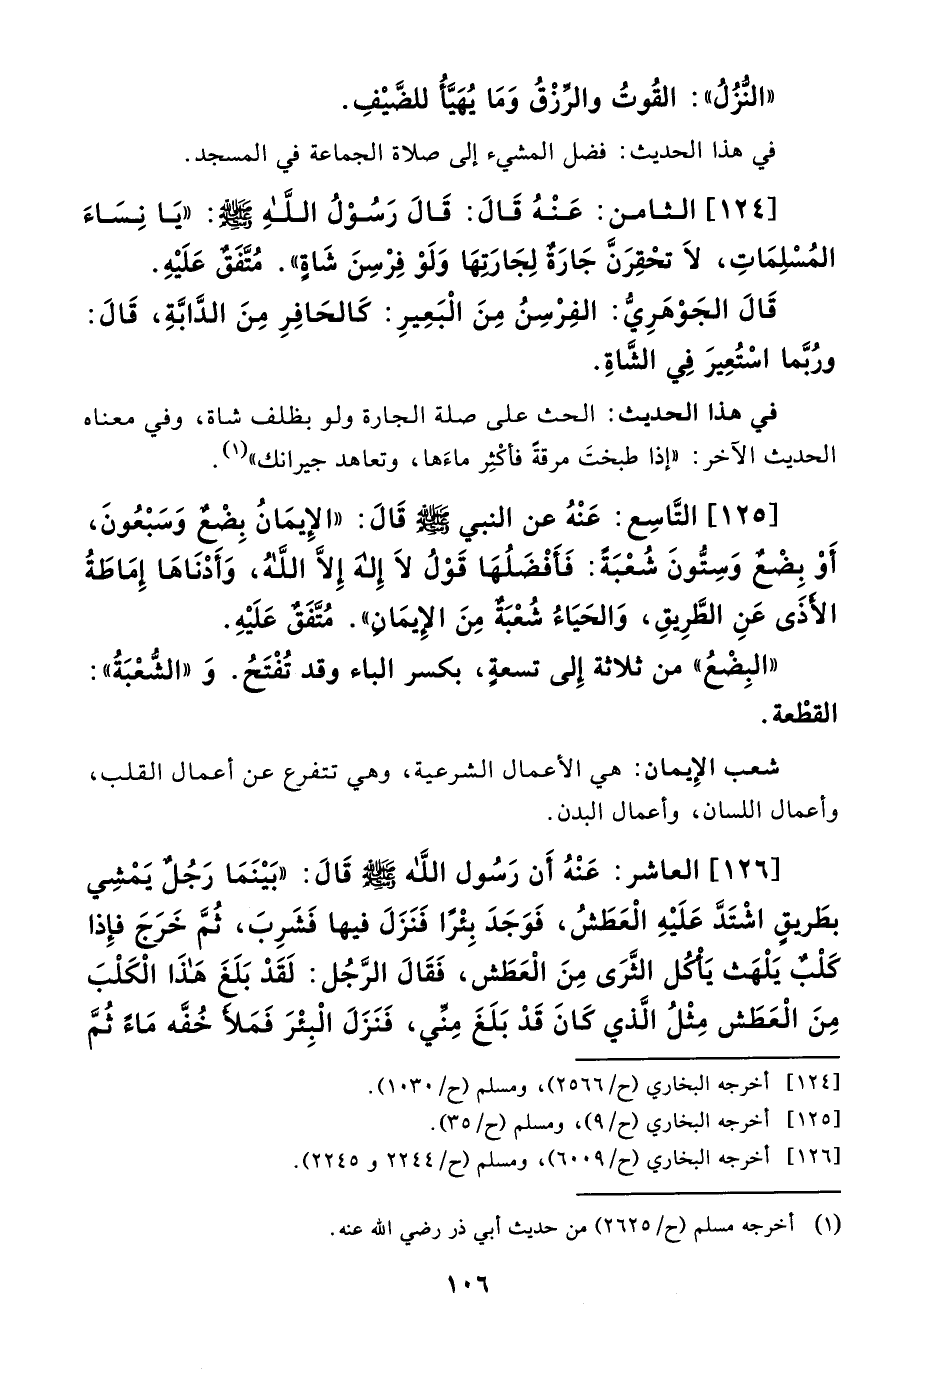 «النُّزُلُ»: القُوتُ والرِّزْقُ وَمَا يُهَيَّأُ للضَّيْفِ.
في هذا الحديث: فضل المشيء إلى صلاة الجماعة في المسجد.
[١٢٤] الثامن: عَنْهُ قَالَ: قَالَ رَسُوْلُ اللَّهِ ﷺ: «يَا نِسَاءَ
المُسْلِمَاتِ، لاَ تحْقِرَنَّ جَارَةٌ لِجَارَتِهَا وَلَوْ فِرْسِنَ شَاةٍ». مُتَّفَقٌ عَلَيْهِ.
قَالَ الجَوْهَرِيُّ: الفِرْسِنُ مِنَ الْبَعِيرِ: كَالحَافِرِ مِنَ الدَّابَّةِ، قَالَ:
ورُبَّما اسْتُعِيرَ فِي الشَّاةِ.
في هذا الحديث: الحث على صلة الجارة ولو بظلف شاة، وفي معناه
الحديث الآخر: «إذا طبختَ مرقةً فأكثِر ماءَها، وتعاهد جيرانك»(١).
[١٢٥] التَّاسِع: عَنْهُ عن النبي ﷺ قَالَ: «الإِيمَانُ بِضْعٌ وَسَبْعُونَ،
أَوْ بِضْعٌ وَسِتُّونَ شُعْبَةً: فَأَفْضَلُهَا قَوْلُ لاَ إِلهَ إِلاَّ اللَّهُ، وَأَدْنَاهَا إمَاطَةُ
الأَذَى عَنِ الطَّرِيقِ، وَالحَيَاءُ شُعْبَةٌ مِنَ الإِيمَانِ». مُتَّفَقٌ عَلَيْهِ.
«البِضْعُ» من ثلاثة إلى تسعةٍ، بكسر الباء وقد تُفْتَحُ. وَ «الشُّعْبَةُ»:
القطْعة.
شعب الإيمان: هي الأعمال الشرعية، وهي تتفرع عن أعمال القلب،
وأعمال اللسان، وأعمال البدن.
[١٢٦] العاشر: عَنْهُ أن رَسُول اللَّه ﷺ قَالَ: «بَيْنَمَا رَجُلٌ يَمْشِي
بطَريقٍ اشْتَدَّ عَلَيْهِ الْعَطَشُ، فَوَجَدَ بِئْرًا فَنَزَلَ فيها فَشَربَ، ثُمَّ خَرَجَ فإذا
كَلْبٌ يَلْهَث يَأْكُل الثَّرَى مِنَ الْعَطَش، فَقَالَ الرَّجُل: لَقَدْ بَلَغَ هَذَا الْكَلْبَ
مِنَ الْعَطَش مِثْلُ الَّذي كَانَ قَدْ بَلَغَ مِنِّي، فَنَزَلَ الْبِئْرَ فَمَلأَ خُفَّه مَاءً ثُمَّ
[١٢٤] أخرجه البخاري (ح/ ٢٥٦٦)، ومسلم (ح/ ١٠٣٠).
[١٢٥] أخرجه البخاري (ح/ ٩)، ومسلم (ح/ ٣٥).
[١٢٦] أخرجه البخاري (ح/ ٦٠٠٩)، ومسلم (ح/ ٢٢٤٤ و ٢٢٤٥).
(١) أخرجه مسلم (ح/ ٢٦٢٥) من حديث أبي ذر رضي الله عنه.
١٠٦